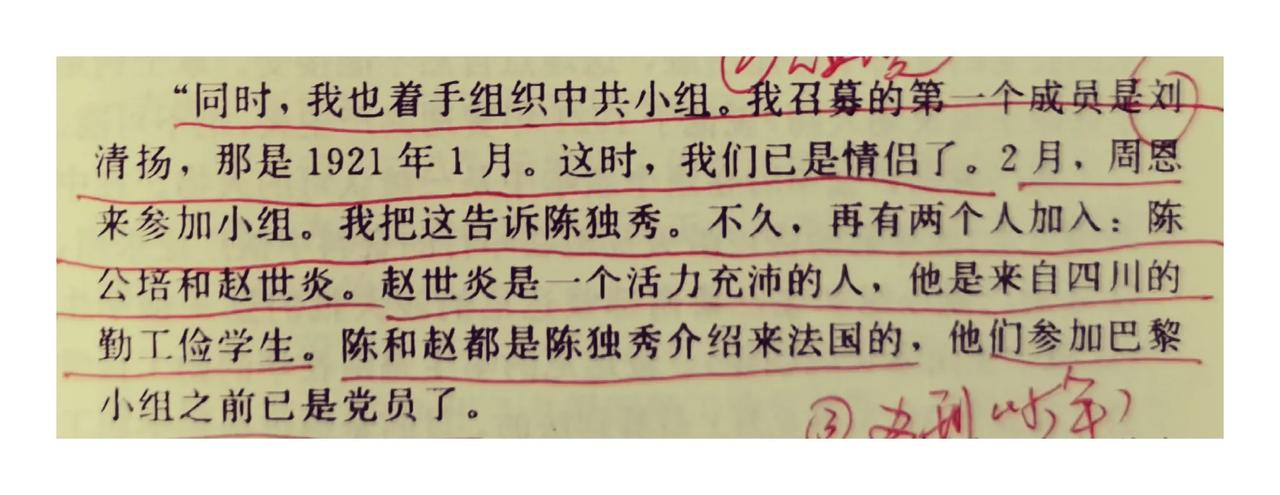 “同时，我也着手组织中共小组。我召募的第一个成员是刘
清扬，那是1921年1月。这时，我们已是情侣了。2月，周恩
来参加小组。我把这告诉陈独秀。不久，再有两个人加入：陈
公培和赵世炎。赵世炎是一个活力充沛的人，他是来自四川的
勤工俭学生。陈和赵都是陈独秀介绍来法国的，他们参加巴黎
小组之前已是党员了。
③